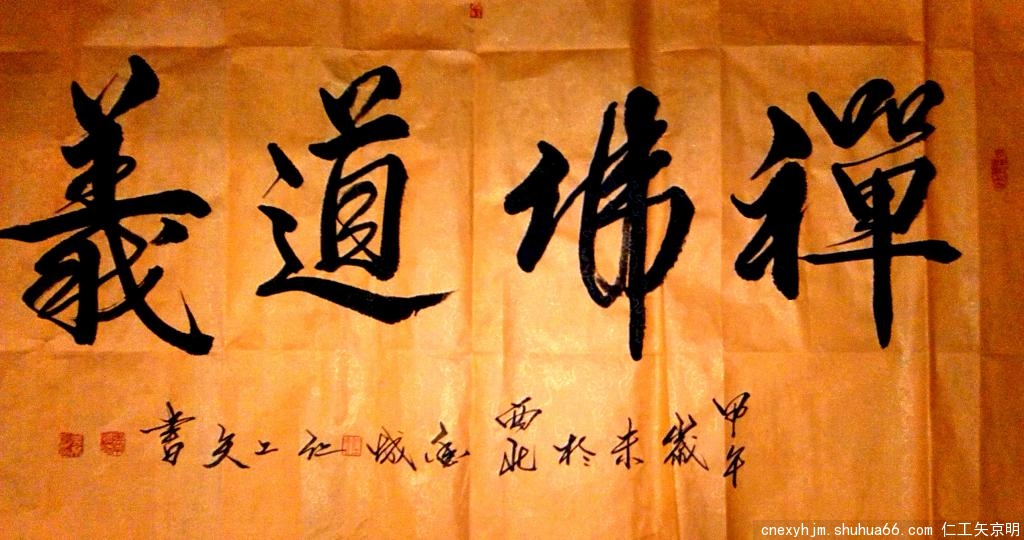 禪佛道義
甲午歲末於西北金城仁工矢書
cnexyhjm.shuhua66.com 仁工矢京明